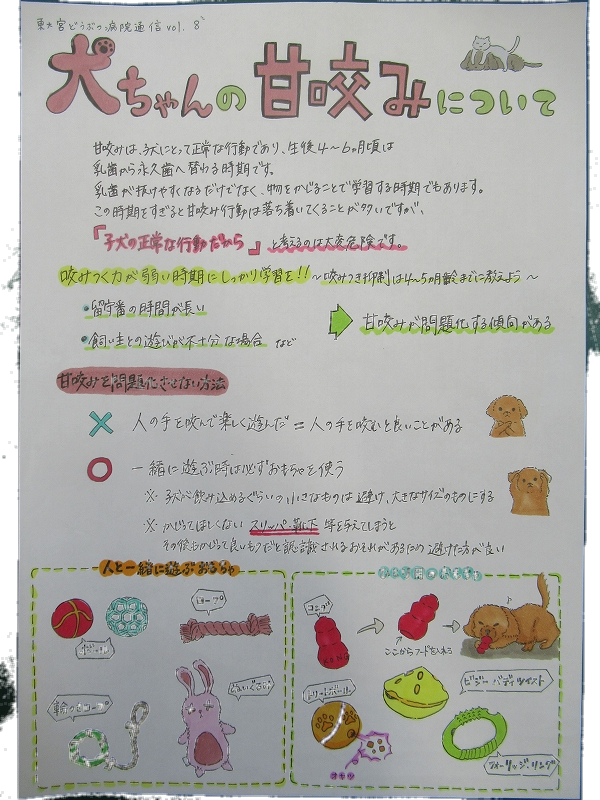 東大宮どうぶつ病院通信 vol. 8
犬ちゃんの甘咬みについて
甘咬みは、子犬にとって正常な行動であり、生後4～6ヶ月頃は
乳歯から永久歯へ替わる時期です。
乳歯が抜けやすくなるだけでなく、物をかじることで学習する時期でもあります。
この時期をすぎると甘咬み行動は落ち着いてくることが多いですが、
『子犬の正常な行動だから』と考えるのは大変危険です。
咬みつく力が弱い時期にしっかり学習を!! ～咬みつき抑制は4～5ヵ月齢までに教えよう～
・留守番の時間が長い
・飼い主との遊びが不十分な場合 など
甘咬みが問題化する傾向がある
甘咬みを問題化させない方法
× 人の手を咬んで楽しく遊んだ = 人の手を咬むと良いことがある
○ 一緒に遊ぶ時は必ずおもちゃを使う
※ 子犬が飲み込めるぐらいの小さなものは避け、大きなサイズのものにする
※ かじってほしくないスリッパ・靴下 等を与えてしまうと
その後もかじって良いものだと認識されるおそれがあるため避けた方が良い
人と一緒に遊ぶおもちゃ
ボール
ロープ
輪っかロープ
ぬいぐるみ
コング
KONG
ここからフードをいれる
トリートボール
オヤツ
ビジーバディツイスト
フォーリッジ・リング